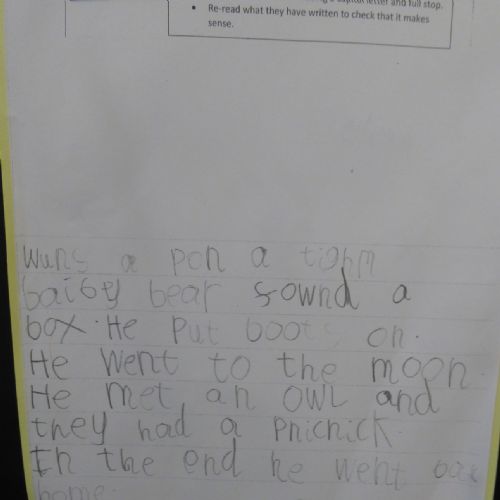 capital letter and full stop.
• Re-read what they have written to check that it makes
sense.
wuns a pon a tighm
baibey bear fownd a
box. He put boots on.
He went to the moon.
He met an owl and
they had a pnicnick.
In the end he went bac
home.